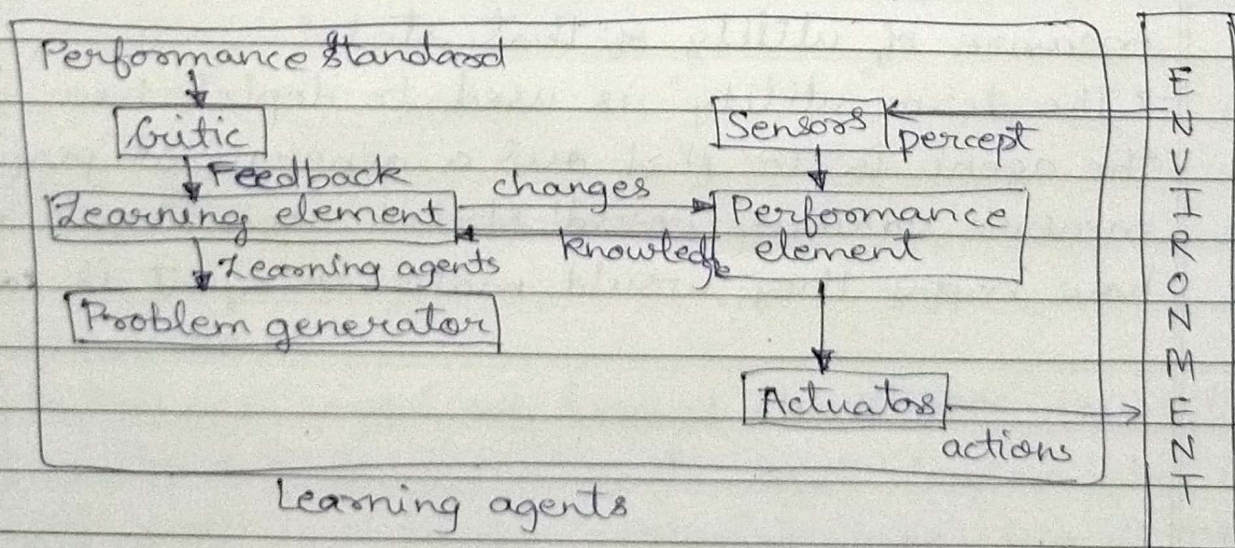 Performance standard
Critic
Feedback
Learning element
Learning agents
Problem generator
changes
knowledge
Sensors
percept
Performance
element
Actuators
actions
ENVIRONMENT
Learning agents